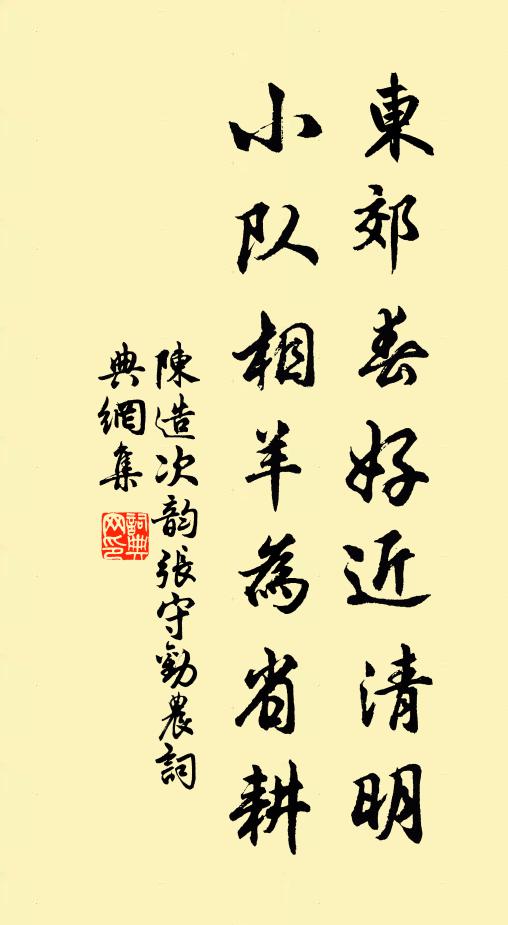 東郊春好近清明
小队相羊為省耕
陳造次韵張守勸農詞
典網集
詞典
网印